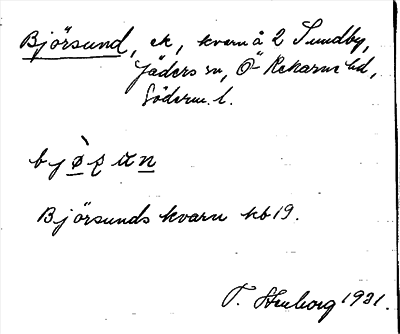 Björsund, ek, kvarn å 2 Sundby,
Jäders sn, Ö Rekarne hd,
Söderm. l.
Björsunds kvarn kb 19.
T. 1931.